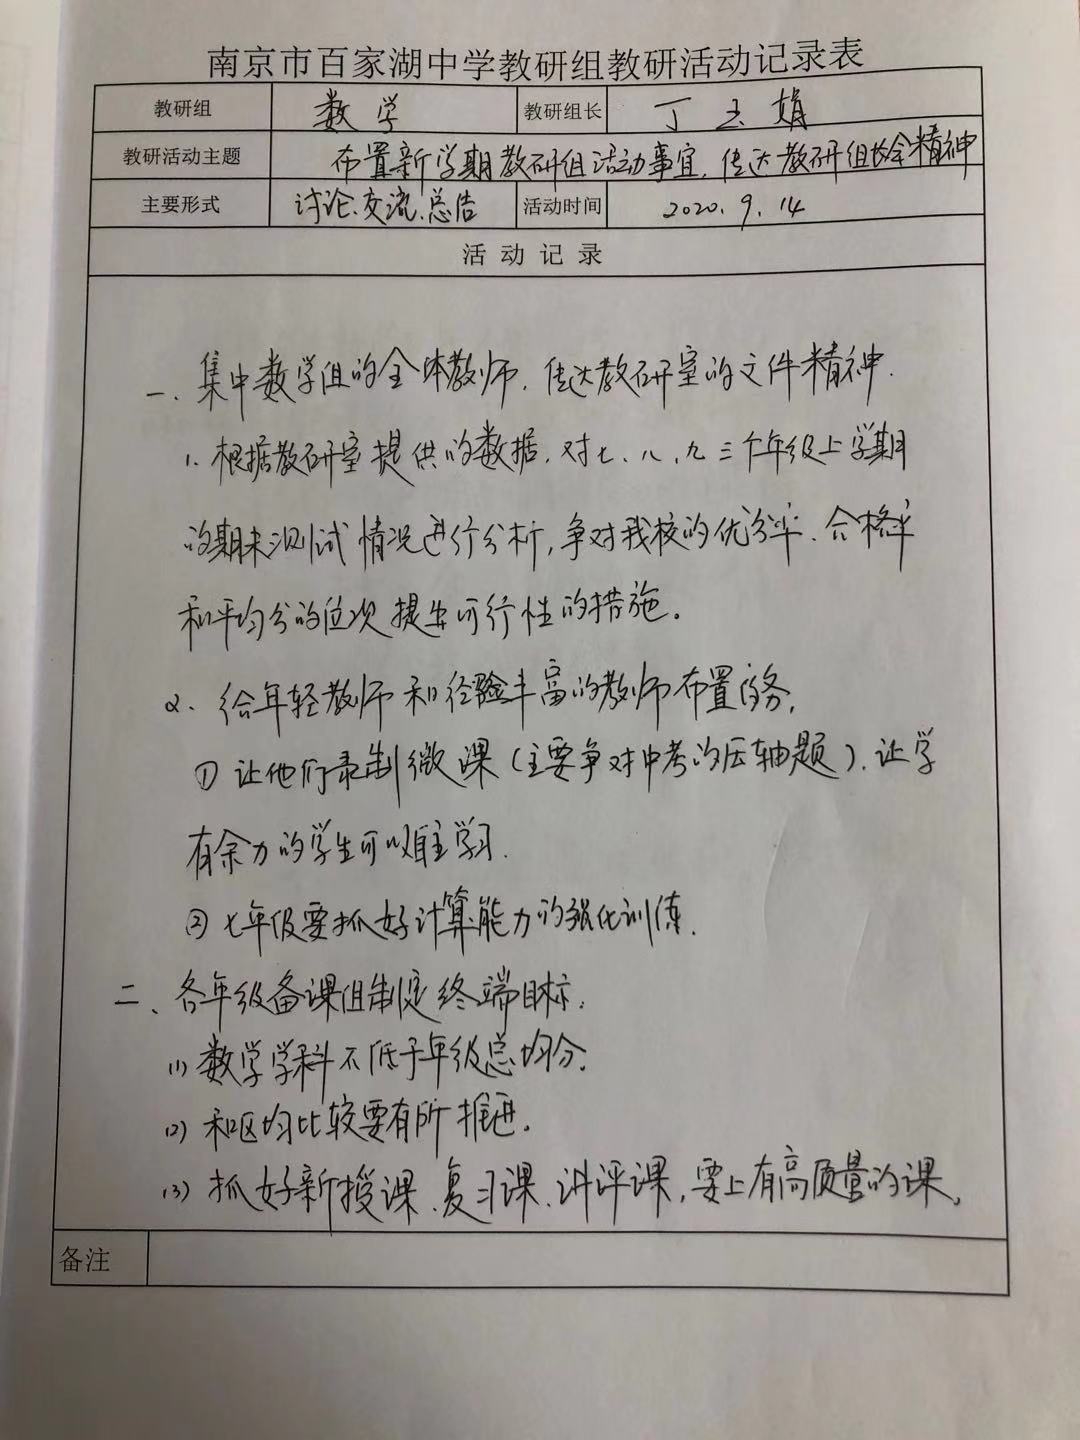 南京市百家湖中学教研组教研活动记录表
教研组 数学 教研组长 丁玉娟
教研活动主题 布置新学期教研组活动事宜,传达教研组长会精神
主要形式 讨论、交流、总结 活动时间 2020.9.14
活动记录
一、集中数学组的全体教师,传达教研室的文件精神.
1、根据教研室提供的数据,对七、八、九三个年级上学期
的期末测试情况进行分析,争对我校的优分率、合格率
和平均分的位次提出可行性的措施。
2、给年轻教师和经验丰富的教师布置任务,
① 让他们录制微课(主要争对中考的压轴题),让学
有余力的学生可以自主学习.
② 七年级要抓好计算能力的强化训练.
二、各年级备课组制定终端目标:
(1) 数学学科不低于年级总均分.
(2) 和区均比较要有所推进.
(3) 抓好新授课、复习课、讲评课,要上有高质量的课。
备注